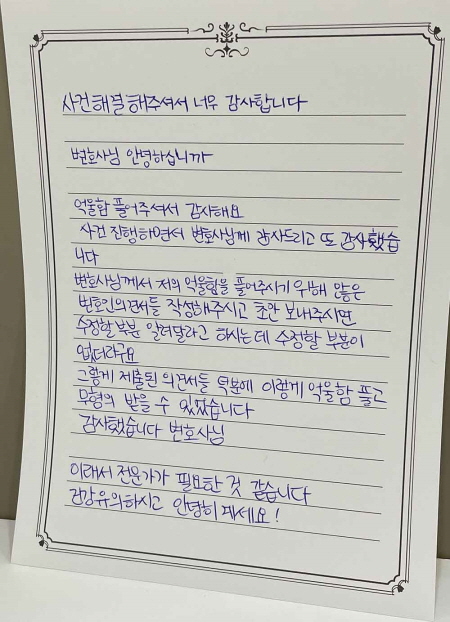 사건해결해주셔서 너무 감사합니다
변호사님 안녕하십니까
억울함 풀어주셔서 감사해요
사건 진행하면서 변호사님께 감사드리고 또 감사했습
니다
변호사님께서 저의 억울함을 풀어주시기 위해 많은
변호인의견서들 작성해주시고 초안 보내주시면
수정할부분 알려달라고 하시는데 수정할 부분이
없더라구요
그렇게 제출된 의견서들 덕분에 이렇게 억울함 풀고
무혐의 받을 수 있었습니다
감사했습니다 변호사님
이래서 전문가가 필요한 것 같습니다
건강유의하시고 안녕히 계세요!